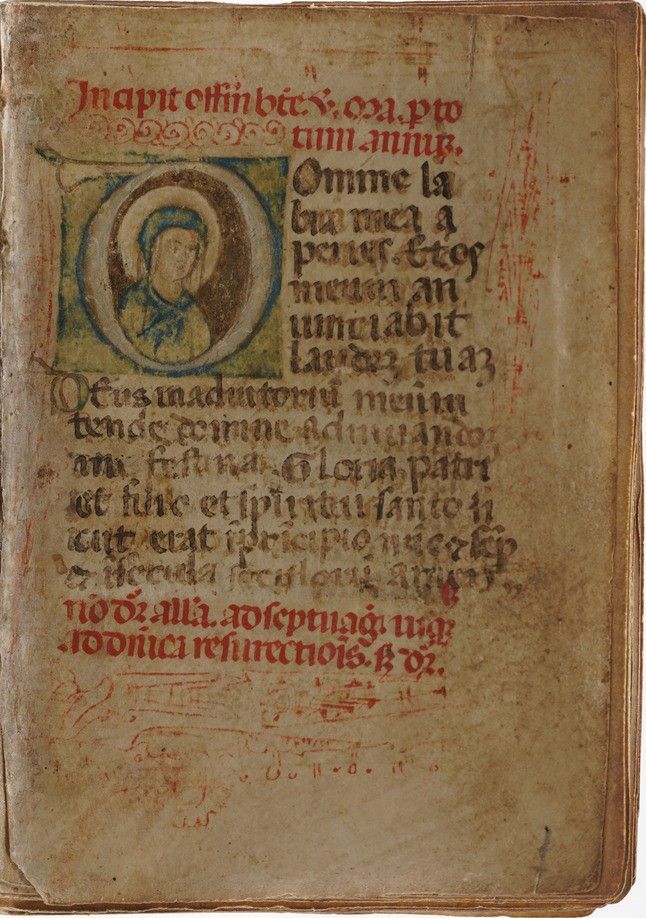 Incipit offm bte. v. ma. p to
tum annuz.
Domine la
bia mea a
peries. Et os
meum an
nunciabit
laudez tuaz
Deus in adiutoriu meum in
tende domine ad iuuando
me festina. Gloria patri
et filio et spiritui santo si
cut erat i principio nuc & semp
& i secula seculorum amen.
no dr alla. ad septuagi usqz
ad dnica resurectiois. sz dr.